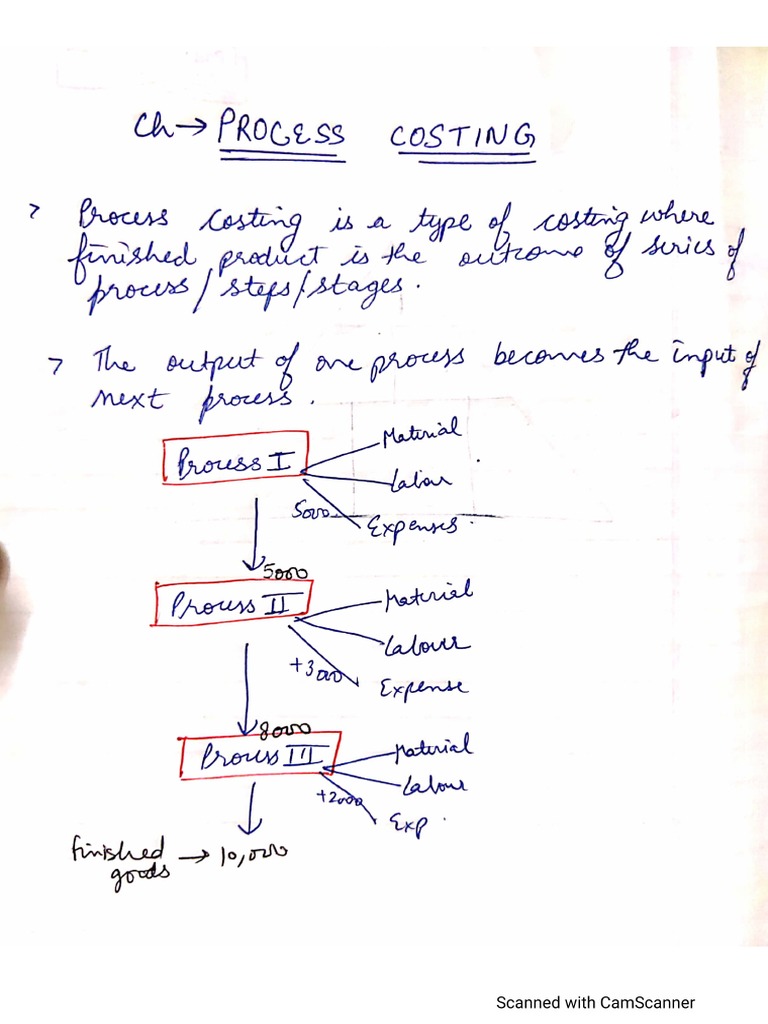 Ch → PROCESS COSTING
> Process Costing is a type of costing where
finished product is the outcome of series of
process/steps/stages.
> The output of one process becomes the input of
next process.
Material
Process I
Labour
5000
Expenses
5000
Process II
Material
Labour
+3000
Expense
8000
Process III
Material
Labour
+2000
Exp.
finished
goods → 10,000
Scanned with CamScanner